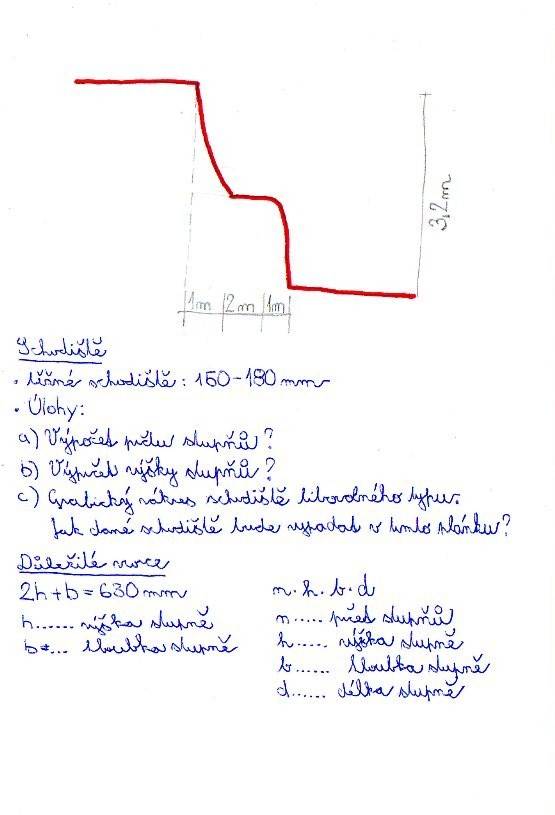 3,2m
1m 2m 1m
Schodiště
• běžné schodiště: 150-180 mm
• Úlohy:
a) Výpočet počtu stupňů?
b) Výpočet výšky stupňů?
c) Grafický nákres schodiště libovolného typu.
Jak dané schodiště bude vypadat v tomto plánku?
Důležité vzorce
2h+b=630mm
h...... výška stupně
b.... hloubka stupně
n.h.b.d
n..... počet stupňů
h..... výška stupně
b...... hloubka stupně
d...... délka stupně